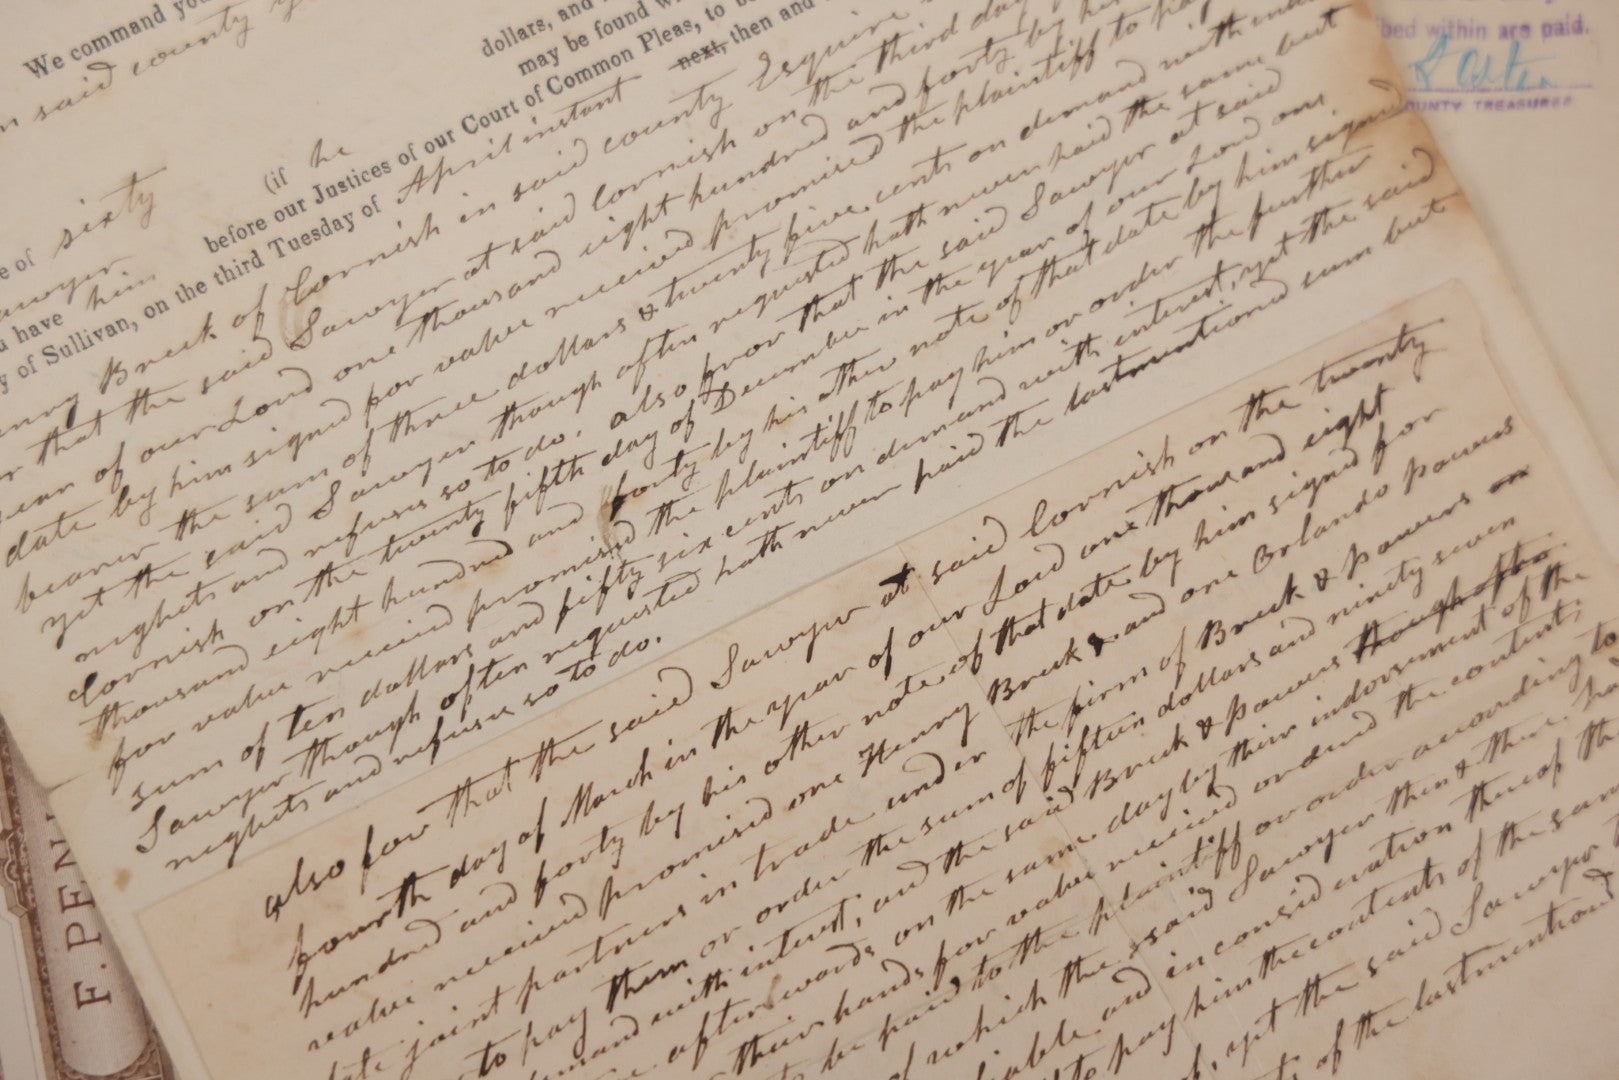 We command you
dollars, and
may be found
in said county
before our Justices of our Court of Common Pleas, to be
(if he
next, then and
of Sullivan, on the third Tuesday of April instant
of sixty
Sawyer
have him
Henry Breck of Cornish in said county Esquire
that the said Sawyer at said Cornish on the third day
year of our Lord one thousand eight hundred and forty by his
date by him signed for value received promised the plaintiff to pay
bearer the sum of three dollars & twenty five cents on demand with
yet the said Sawyer though often requested hath never paid the same but
neglects and refuses so to do. also for that the said Sawyer at said
Cornish on the twenty fifth day of December in the year of our Lord one
thousand eight hundred and forty by his other note of that date by him signed
for value received promised the plaintiff to pay him or order the further
sum of ten dollars and fifty six cents on demand with interest, yet the said
Sawyer though often requested hath never paid the lastmentioned sum but
neglects and refuses so to do.
also for that the said Sawyer at said Cornish on the twenty
fourth day of March in the year of our Lord one thousand eight
hundred and forty by his other note of that date by him signed for
value received promised one Henry Breck & and one Orlando Powers
joint partners in trade under the firm of Breck & Powers on
to pay them or order the sum of fifteen dollars and ninety seven
demand with interest, and the said Breck & Powers though often
afterwards on the same day by their indorsement of the
their hands for value received ordered the content,
to be paid to the plaintiff or order according to
of which the said Sawyer then & there
liable and in consideration thereof
to pay him the contents of the same
yet the said Sawyer
of the lastmentioned
bed within are paid.
COUNTY TREASURER
F. PEN